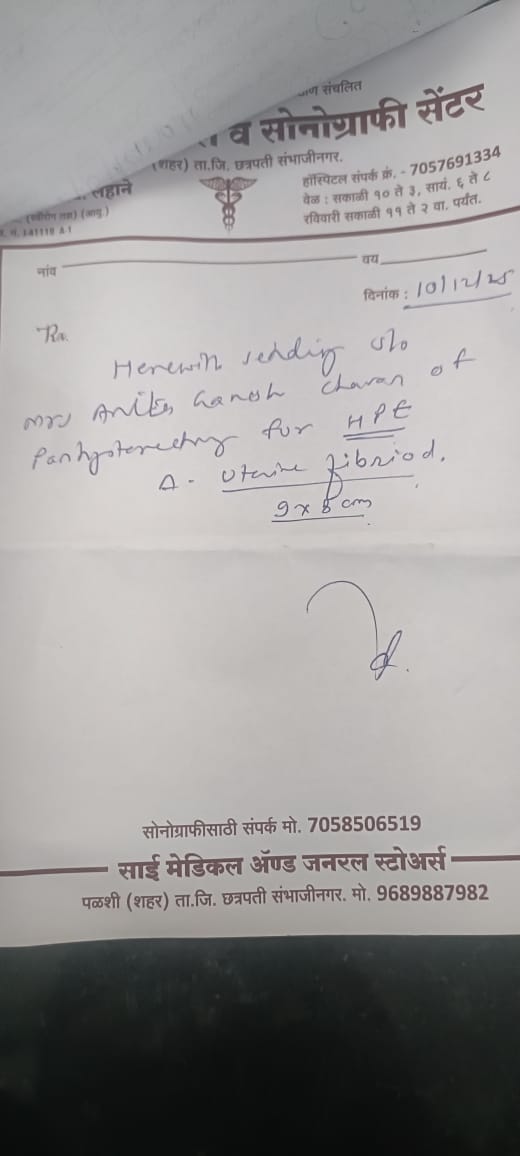 संचलित
व सोनोग्राफी सेंटर
(शहर) ता.जि. छत्रपती संभाजीनगर.
हॉस्पिटल संपर्क क्रं. - 7057691334
वेळ : सकाळी १० ते ३, सायं. ६ ते ८
रविवारी सकाळी ११ ते २ वा. पर्यंत.
लहाने
नांव
वय
दिनांक : 10/12/25
Herewith sending
Mrs Anita Ganesh Chavan of
Panhysterectomy for HPE
Δ - Uterine fibriod.
9 x 8 cm
सोनोग्राफीसाठी संपर्क मो. 7058506519
साई मेडिकल ॲण्ड जनरल स्टोअर्स
पळशी (शहर) ता.जि. छत्रपती संभाजीनगर. मो. 9689887982